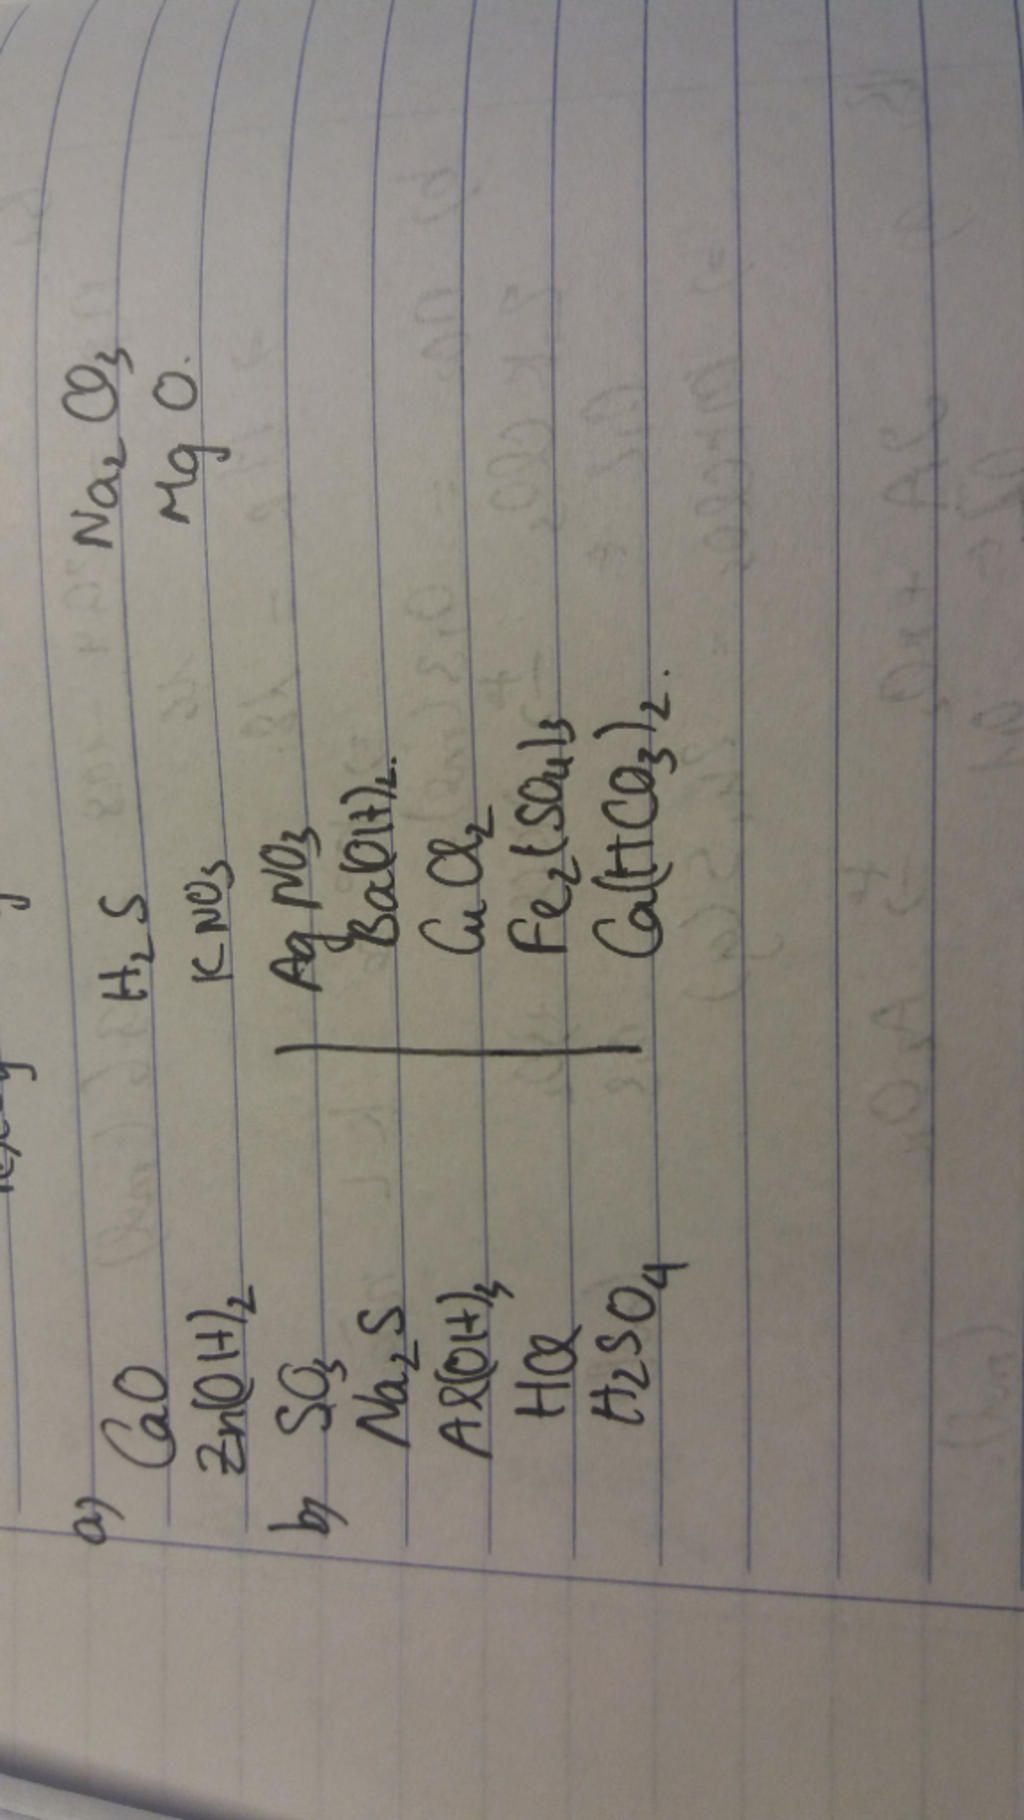 a) CaO H₂S Na₂CO₃
Zn(OH)₂ KNO₃ MgO.
b) SO₃ AgNO₃
Na₂S Ba(OH)₂.
Al(OH)₃ CuCl₂
HCl Fe₂(SO₄)₃
H₂SO₄ Ca(HCO₃)₂.